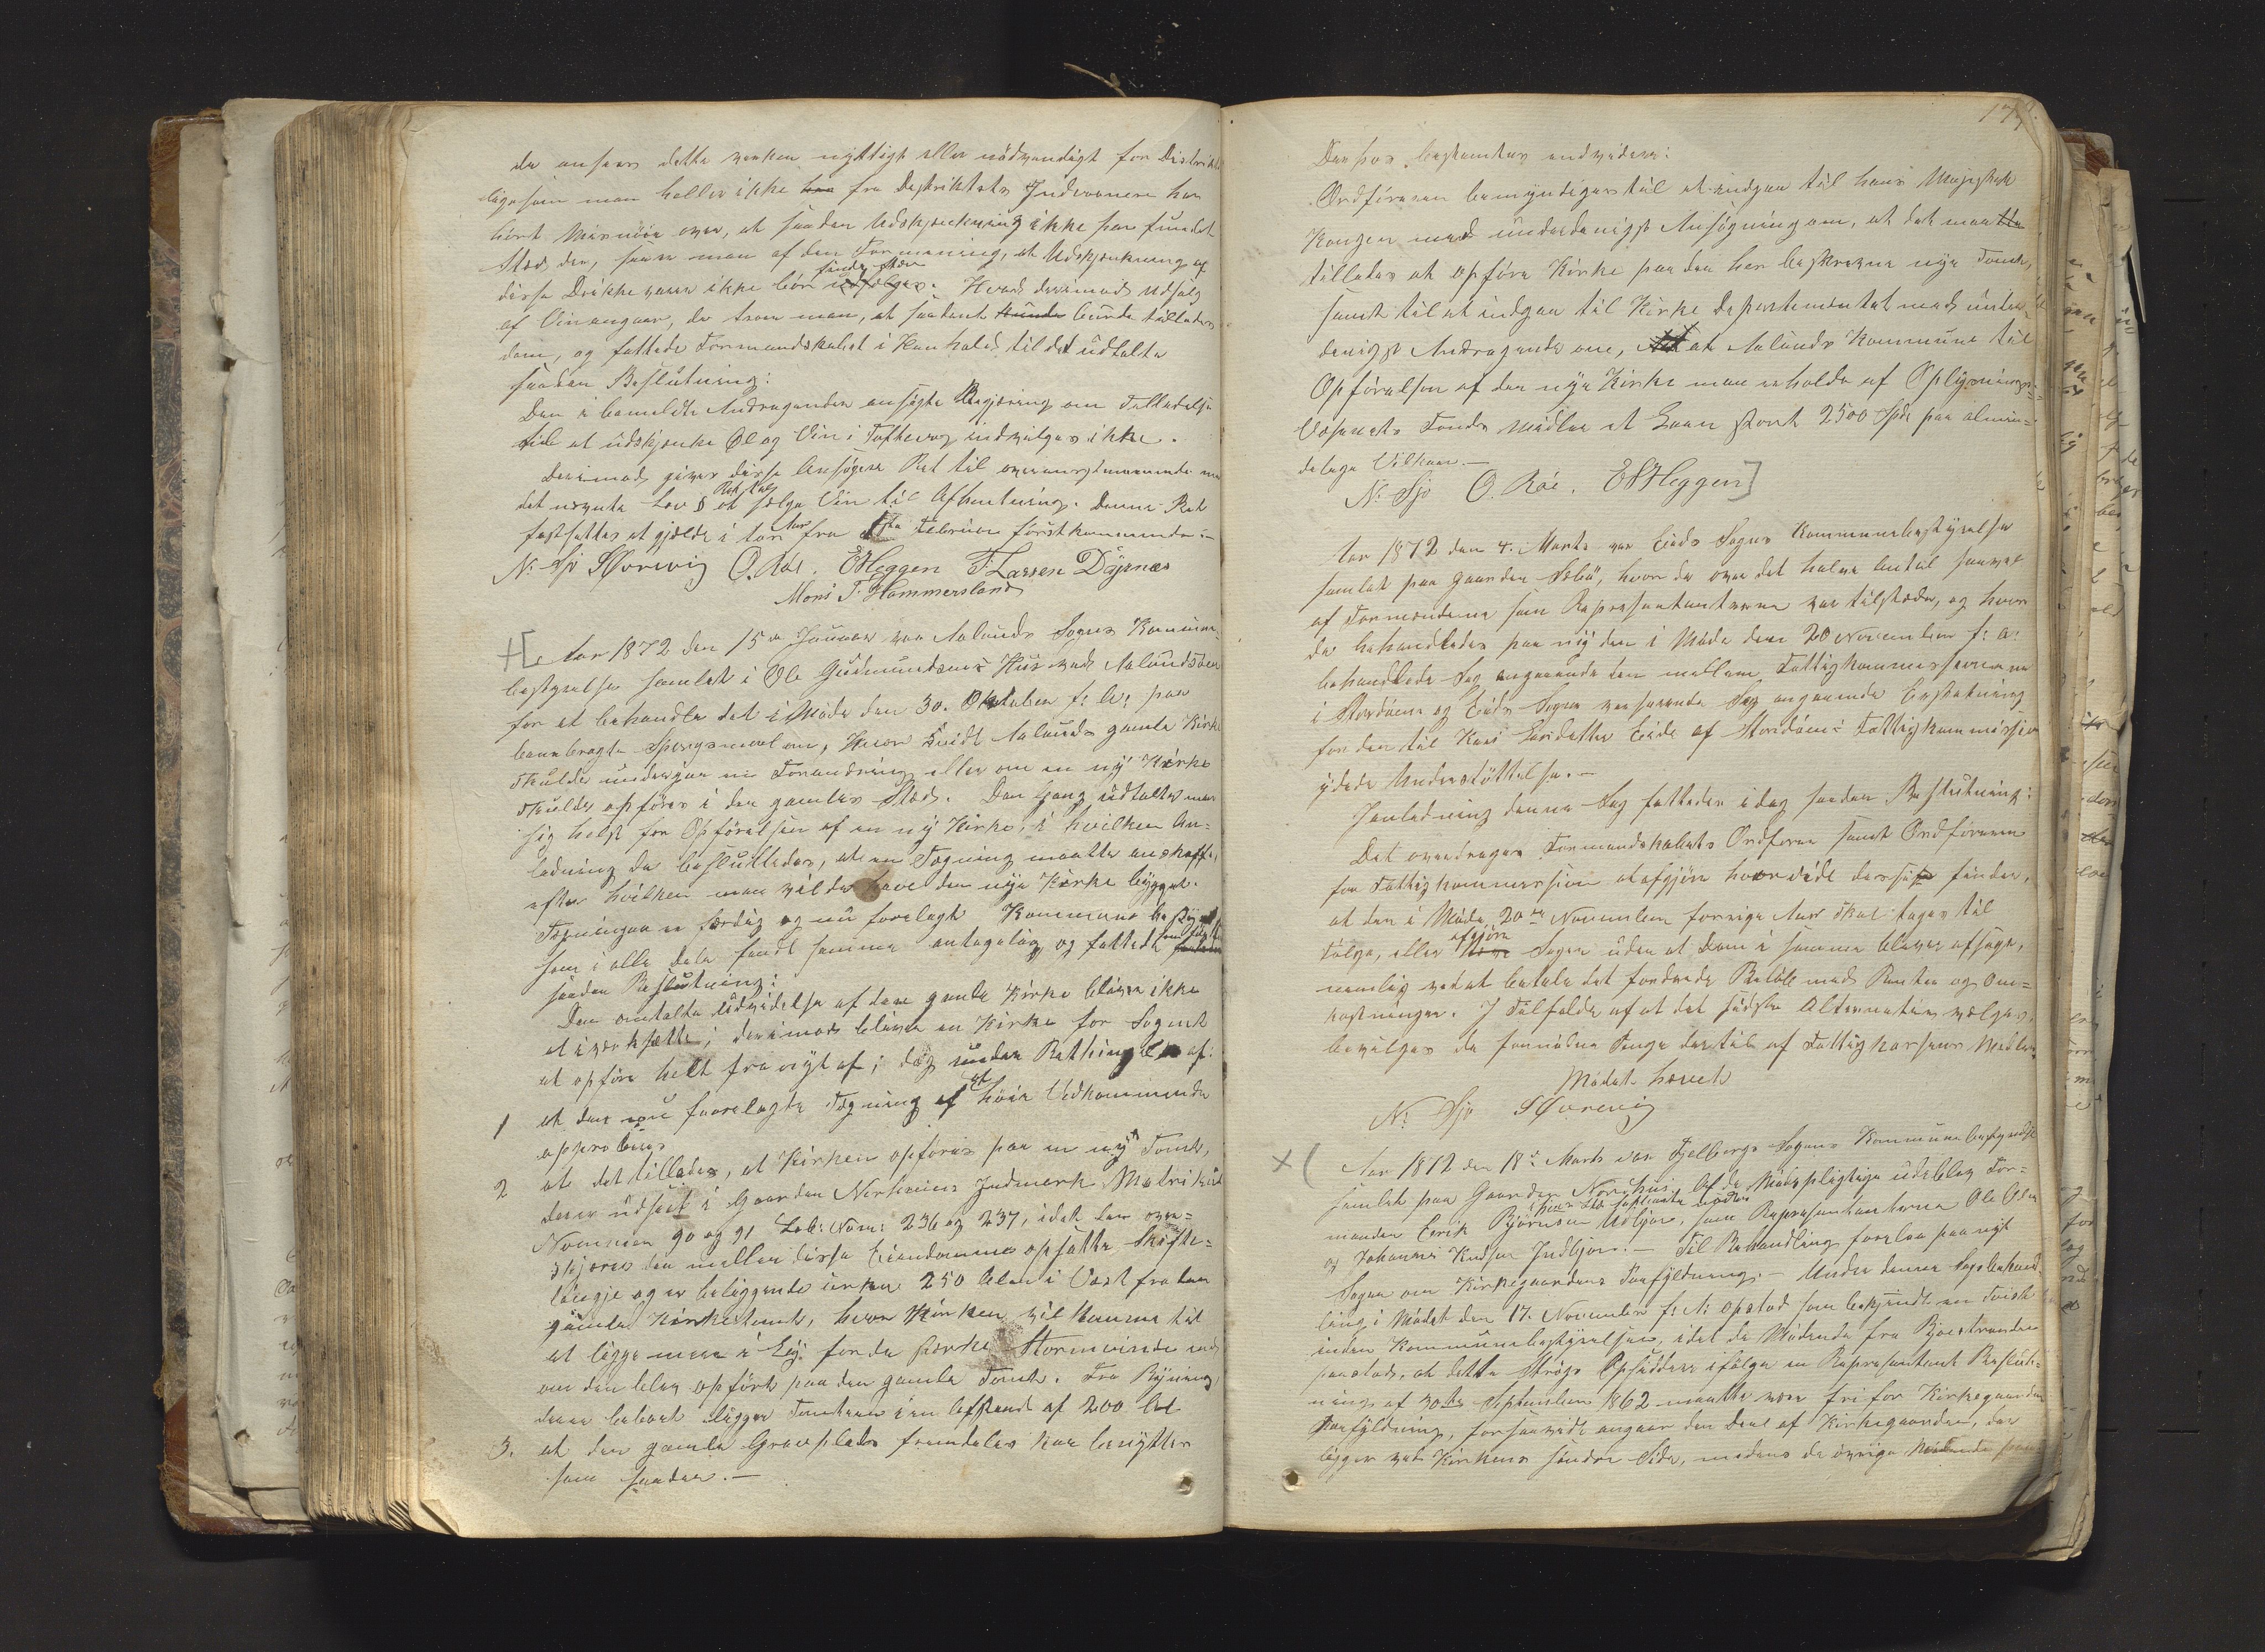 da ansees dette verken nyttigt eller nödvendigt for Distriktet
ligesom man heller ikke fra Destriktets Indvaanere har
hört Misnöie over, at saadan Udskjænkning ikke har fundet
Sted der, saa er man af den Formening, at Udskjænkning af
disse Drikkevarer ikke bör finde Sted. Hvad derimod Udsalg
af Vin angaar, da troer man, at saadant burde tillades
dem, og fattede Formandskabet i Henhold til det udtalte
saadan Beslutning:
Den i bemeldte Andragender ansögte Begjæring om Tilladelse
til at udskjenke Øl og Vin i Toftevog indvilges ikke.
Derimod gives disse Ansögere Ret til overensstemmende med
det nævnte Lov § at sælge Vin til Afhentning. Denne Ret
fastsættes at gjælde i et Aar fra 1ste Februar förstkommende.-
N: Sjo SØvrevig O. Röe. EHeggen T. Larsen Döjsnæs
Mons T. Hammersland
Aar 1872 den 15de Januar var Aalunds Sogns Kommune-
bestyrelse samlet i Ole Gudmundsens Hus ved Aalundsöen
for at behandle det i Möde den 30. Oktober f: A: paa
banebragte Spörgsmaal om, Hvor vidt Aalunds gamle Kirke
skulde undergaa en Forandring eller om en ny Kirke
skulde opföres i den gamles Sted. Den Gang udtalte man
sig helst for Opförelsen af en ny Kirke, i hvilken An-
ledning da besluttedes, at en Tegning maatte anskaffes,
efter hvilken man vilde have den nye Kirke bygget.
Tegningen er færdig og nu forelagt Kommunebestyrelsen
som i alle Dele fandt samme antagelig og fattede
saadan Beslutning:
Den omtalte Udvidelse af den gamle Kirke bliver ikke
at iværksætte; derimod bliver en Kirke for Sognet
at opföre helt fra nyt af; dog under Bethingelse af:
1 at den nu foorelagte Tegning af höie Vedkommende
approberes
2 at det tillades, at Kirken opföres paa en ny Tomt,
der er udseet i Gaarden Nerheims Indmark Matrikul
Nummer 90 og 91 Löb: Num: 236 og 237, idet den over-
skjærer den mellem disse Eiendomme opsatte Skifte-
læugje og er beliggende cirka 250 Alen i Vest fra den
gamle Kirketomt, hvor Kirken vil komme til
at ligge mere i Læ for de stærke Stormvinde end
om den blev opfört paa den gamle Tomt. Fra Bygning
der er beboet ligger Tomten i en Afstand af 200 Al.
3. at den gamle Gravplads fremdeles kan benyttes
som saadan.-
177.
Derhos bestemtes endvidere:
Ordföreren bemyndiges til at indgaa til hans Majestæt
Kongen med underdanigst Ansögning om, at det maatte
tillades at opföre Kirke paa den her beskrevne nye Tomt,
samt til at indgaa til Kirke Departementet med under-
danigst Andragende om, at Aalunds Kommune til
Opförelsen af den nye Kirke maa erholde af Oplysnings-
Væsenets Fonds Midler et Laan stort 2500 Spd: paa almin-
delige Vilkaar.-
N: Sjo O. Röe. EHHeggen
Aar 1872 den 4. Marts var Eids Sogns Kommunebestyrelse
samlet paa Gaarden Sæbö, hvor da over det halve Antal saavel
af Formændene som Repræsentanterne var tilstede, og hvor
da behandledes paa ny den i Möde den 20 November f: A:
behandlede Sag angaaende den mellem Fattigkommissionerne
i Stordöens og Eids Sogne verserende Sag angaaende Erstatning
for den til Kari Larsdatter Eide af Stordöens Fattigkommission
ydede Understöttelse.-
I Anledning denne Sag fattedes idag saadan Beslutning:
Det overdrages Formandskabets Ordförer samt Ordföreren
for Fattigkommission at afgjöre hvorvidt
at den i Möde 20de November forrige Aar skal tages til
fölge, eller afgjöre Sagen uden at Dom i samme bliver afsagt,
nemlig ved at betale det fordrede Belöb med Renter og Om-
kostninger. I Tilfælde af at det sidste Alternativ vælges,
bevilges de fornödne Penge dertil af Fattigkassens Midler.
Mödet hævet
N: Sjo SØvrevig
Aar 1872 den 18de Marts var Fjelbergs Sogns Kommunebestyrelse
samlet paa Gaarden Norhus. Af de Mödepligtige udeblev For-
manden Eirik Björnsen Udbjoe, som Repræsentanterne Ole Olsen
og Johannes Knudsen Indbjoe.- Til Behandling forelaa paa nyt
Sagen om Kirkegaardens Paafyldning.- Under denne Sags behand-
ling i Mödet den 17. November f: A: opstod som bekjendt en Tvist
inden Kommunebestyrelsen, idet de Mödende fra Bjoestranden
paastod, at dette Strögs Opsiddere ifölge en Repræsentant Beslut-
ning af 30te September 1862 maatte være fri for Kirkegaardens
Paafyldning, forsaavidt angaar den Deel af Kirkegaarden, der
ligger ved Kirkens söndre Side, medens de övrige Mödende paa